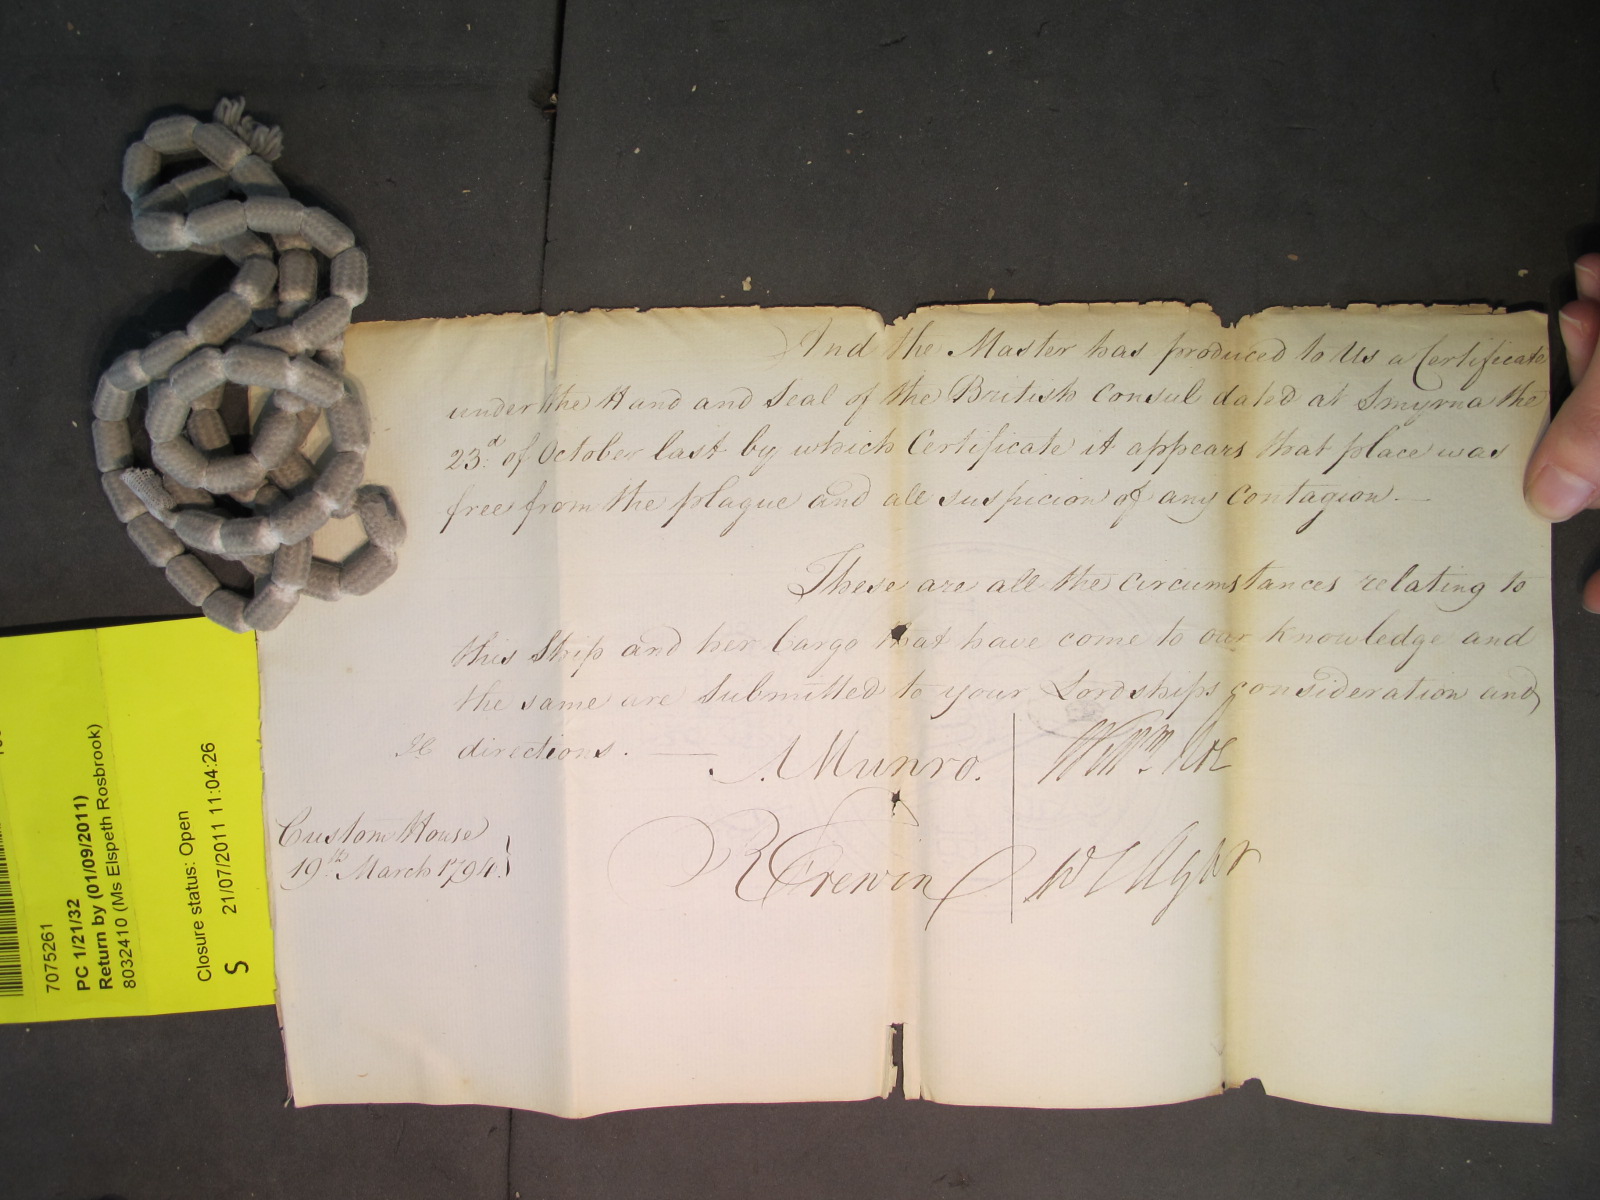 And the Master has produced to Us a Certificate
under the Hand and Seal of the British Consul dated at Smyrna the
23.d of October last by which Certificate it appears that place was
free from the plague and all suspicion of any Contagion. —
These are all the circumstances relating to
this Ship and her Cargo that have come to our knowledge and
the same are submitted to your Lordships consideration and
directions. —
A Munro.
Wm. Roe
R Frewin
Custom House
19th March 1794.
7075261
PC 1/21/32
Return by (01/09/2011)
8032410 (Ms Elspeth Rosbrook)
Closure status: Open
21/07/2011 11:04:26
S